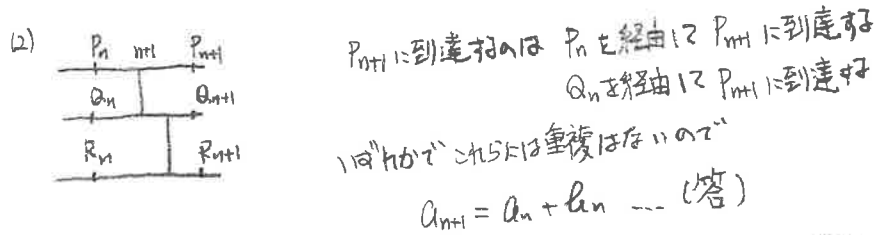 (2)
P_n n+1 P_{n+1}
Q_n Q_{n+1}
R_n R_{n+1}
P_{n+1}に到達するのは P_nを経由して P_{n+1}に到達する
Q_nを経由して P_{n+1}に到達する
いずれかで これらには重複はないので
a_{n+1} = a_n + b_n … (答)